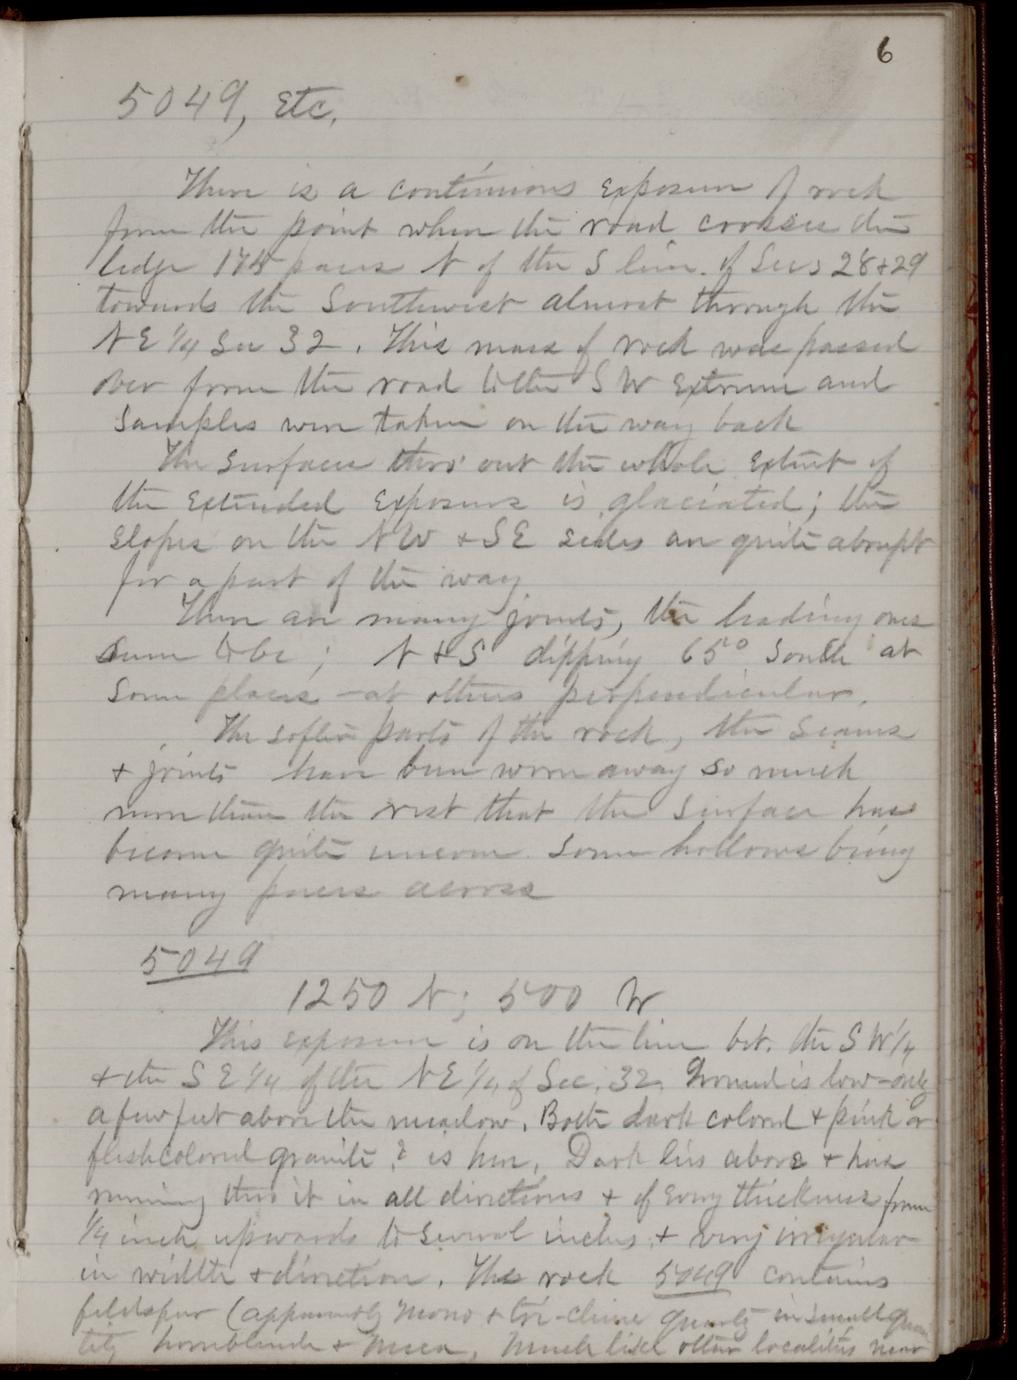 6
5049, Etc.
There is a continuous exposure of rock
from the point where the road crosses the
ledge 174 paces N of the S line of Secs 28+29
towards the Southwest almost through the
NE 1/4 Sec 32. This mass of rock was passed
over from the road to the SW extreme and
samples were taken on the way back
The surface thro' out the whole extent of
the extended exposure is glaciated; the
slopes on the NW + SE sides are quite abrupt
for a part of the way
There are many joints, the leading ones
seem to be; N + S dipping 65° South at
some places - at others perpendicular.
The softer parts of the rock, the seams
+ joints have been worn away so much
more than the rest that the surface has
become quite uneven some hollows being
many paces across
5049
1250 N; 500 W
This exposure is on the line bet. the SW 1/4
+ the SE 1/4 of the NE 1/4 of Sec. 32. Ground is low-only
a few feet above the meadow. Both dark colored + pink or
fleshcolored granite? is here. Dark lies above + has
running thro it in all directions + of every thickness from
1/4 inch upwards to several inches + very irregular
in width + direction. The rock 5049 contains
feldspar (apparently mono + tri-clinic quartz in small quan
tity hornblende + mica. Much like other localities near